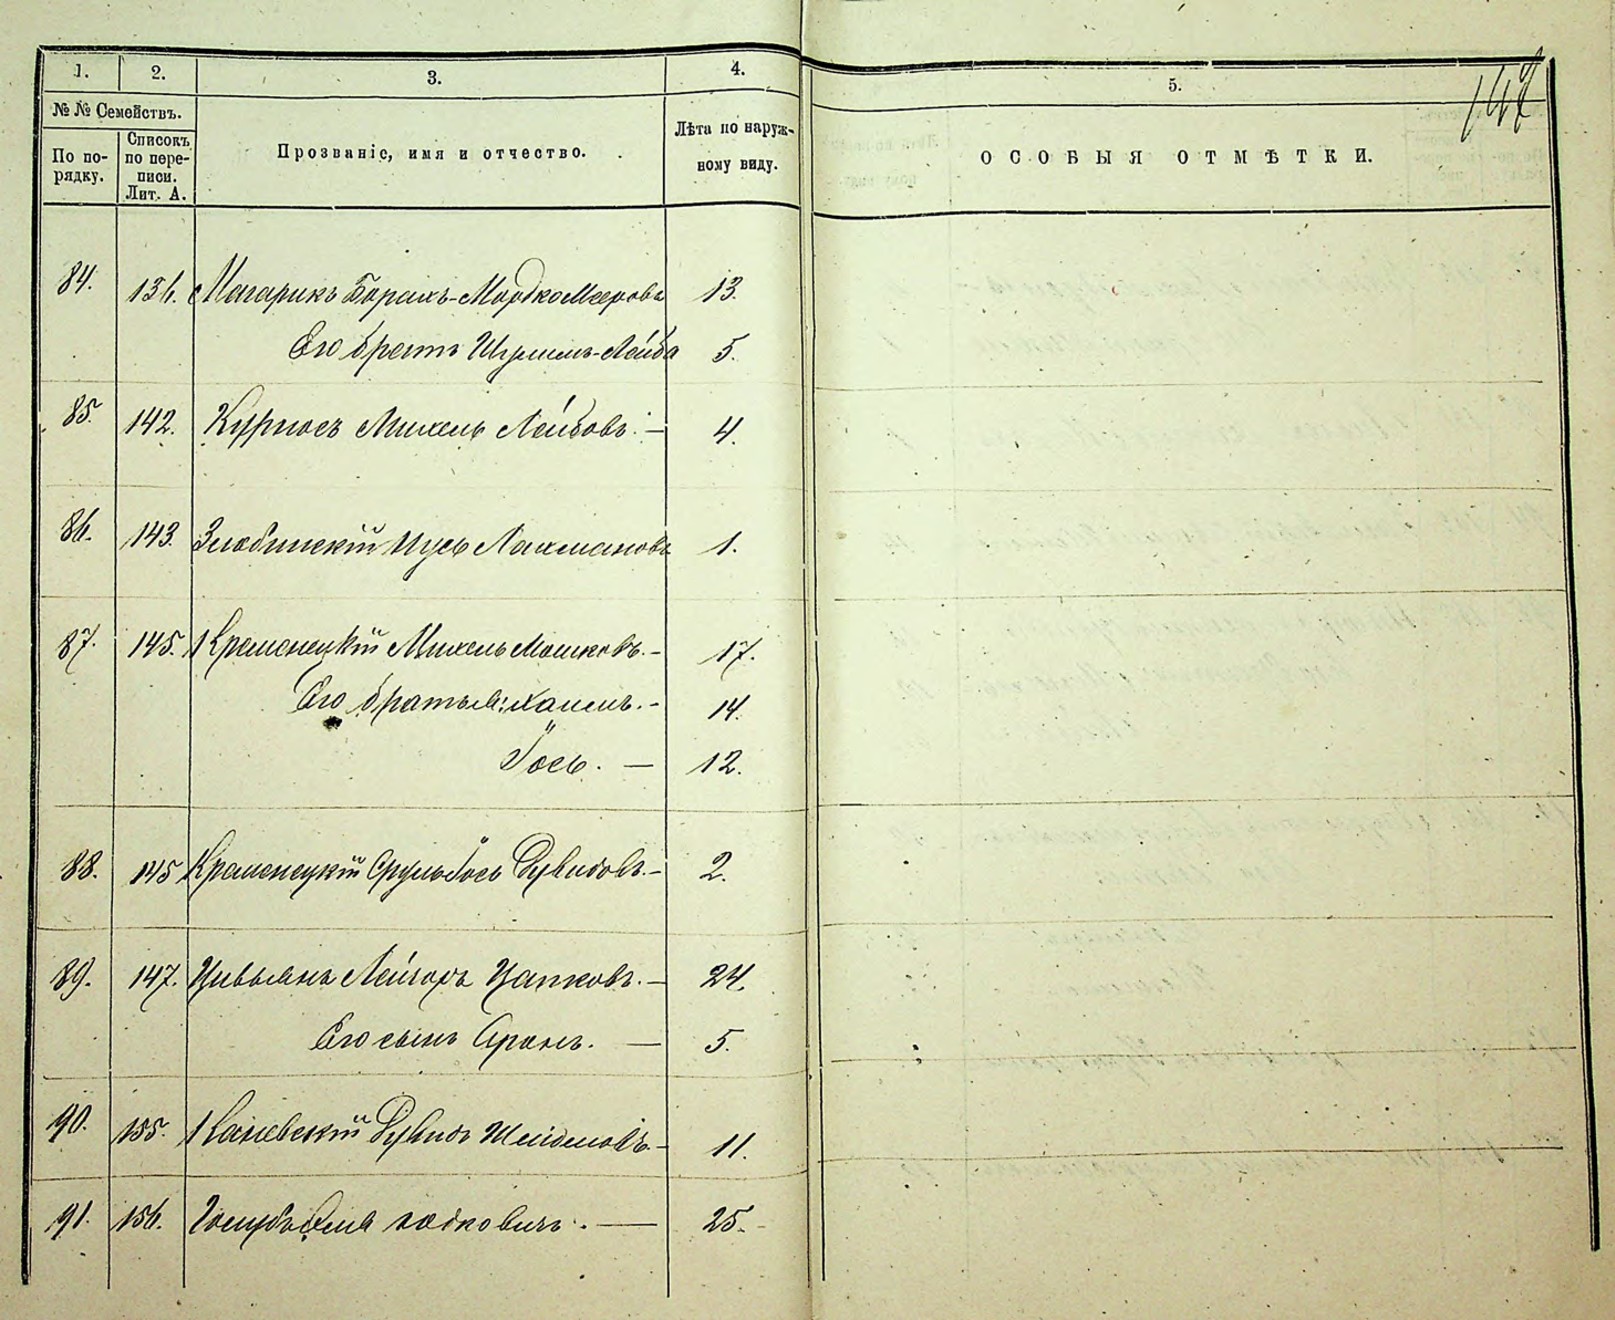 1. 2. 3. 4. 5.
147
№ № Семействъ.
По по-
рядку.
Списокъ
по пере-
писи.
Лит. А.
Прозваніе, имя и отчество.
Лѣта по наруж-
ному виду.
ОСОБЫЯ ОТМѢТКИ.
84. 136. Магарикъ Борахъ-Мордко Мееровъ 13.
Его братъ Шулимъ-Лейба 5.
85. 142. Курносъ Михель Лейбовъ. — 4.
86. 143. Злобинскій Нусь Нахмановъ 1.
87. 145. Кременецкій Михель Мошковъ. — 17.
Его братья: Хаимъ. — 14.
Іось. — 12.
88. 145 Кременецкій Сруль Іось Дувидовъ. — 2.
89. 147. Цивьянъ Лейзоръ Цапковъ. — 24.
Его сынъ Аронъ. — 5.
90. 155. Каневскій Дувидъ Шейдемовъ. — 11.
91. 156. Голубъ — 25.